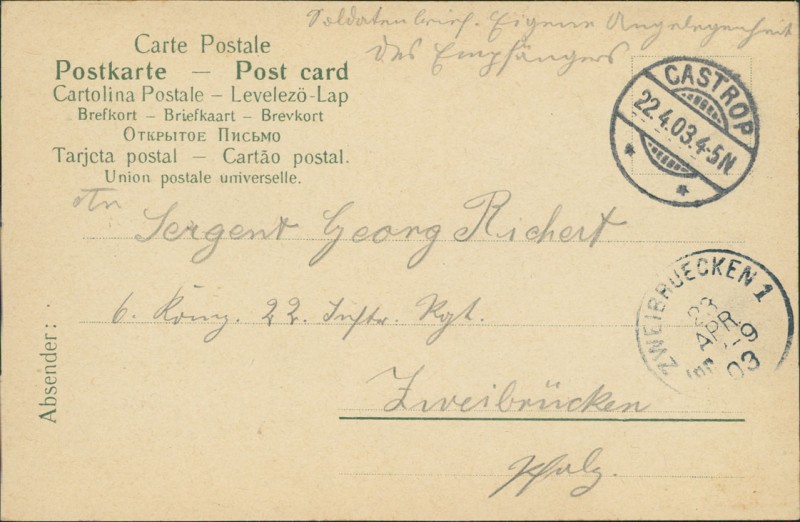 Soldatenbrief. Eigene Angelegenheit
des Empfängers
Carte Postale
Postkarte — Post card
Cartolina Postale – Levelező-Lap
Brefkort – Briefkaart – Brevkort
Открытое Письмо
Tarjcta postal — Cartão postal.
Union postale universelle.
CASTROP
22.4.03.4-5N.
* *
An
Sergent Georg Richert
6. Komp. 22. Inftr. Rgt.
Zweibrücken
Pfalz.
ZWEIBRUECKEN 1
23
APR.
03
Absender: